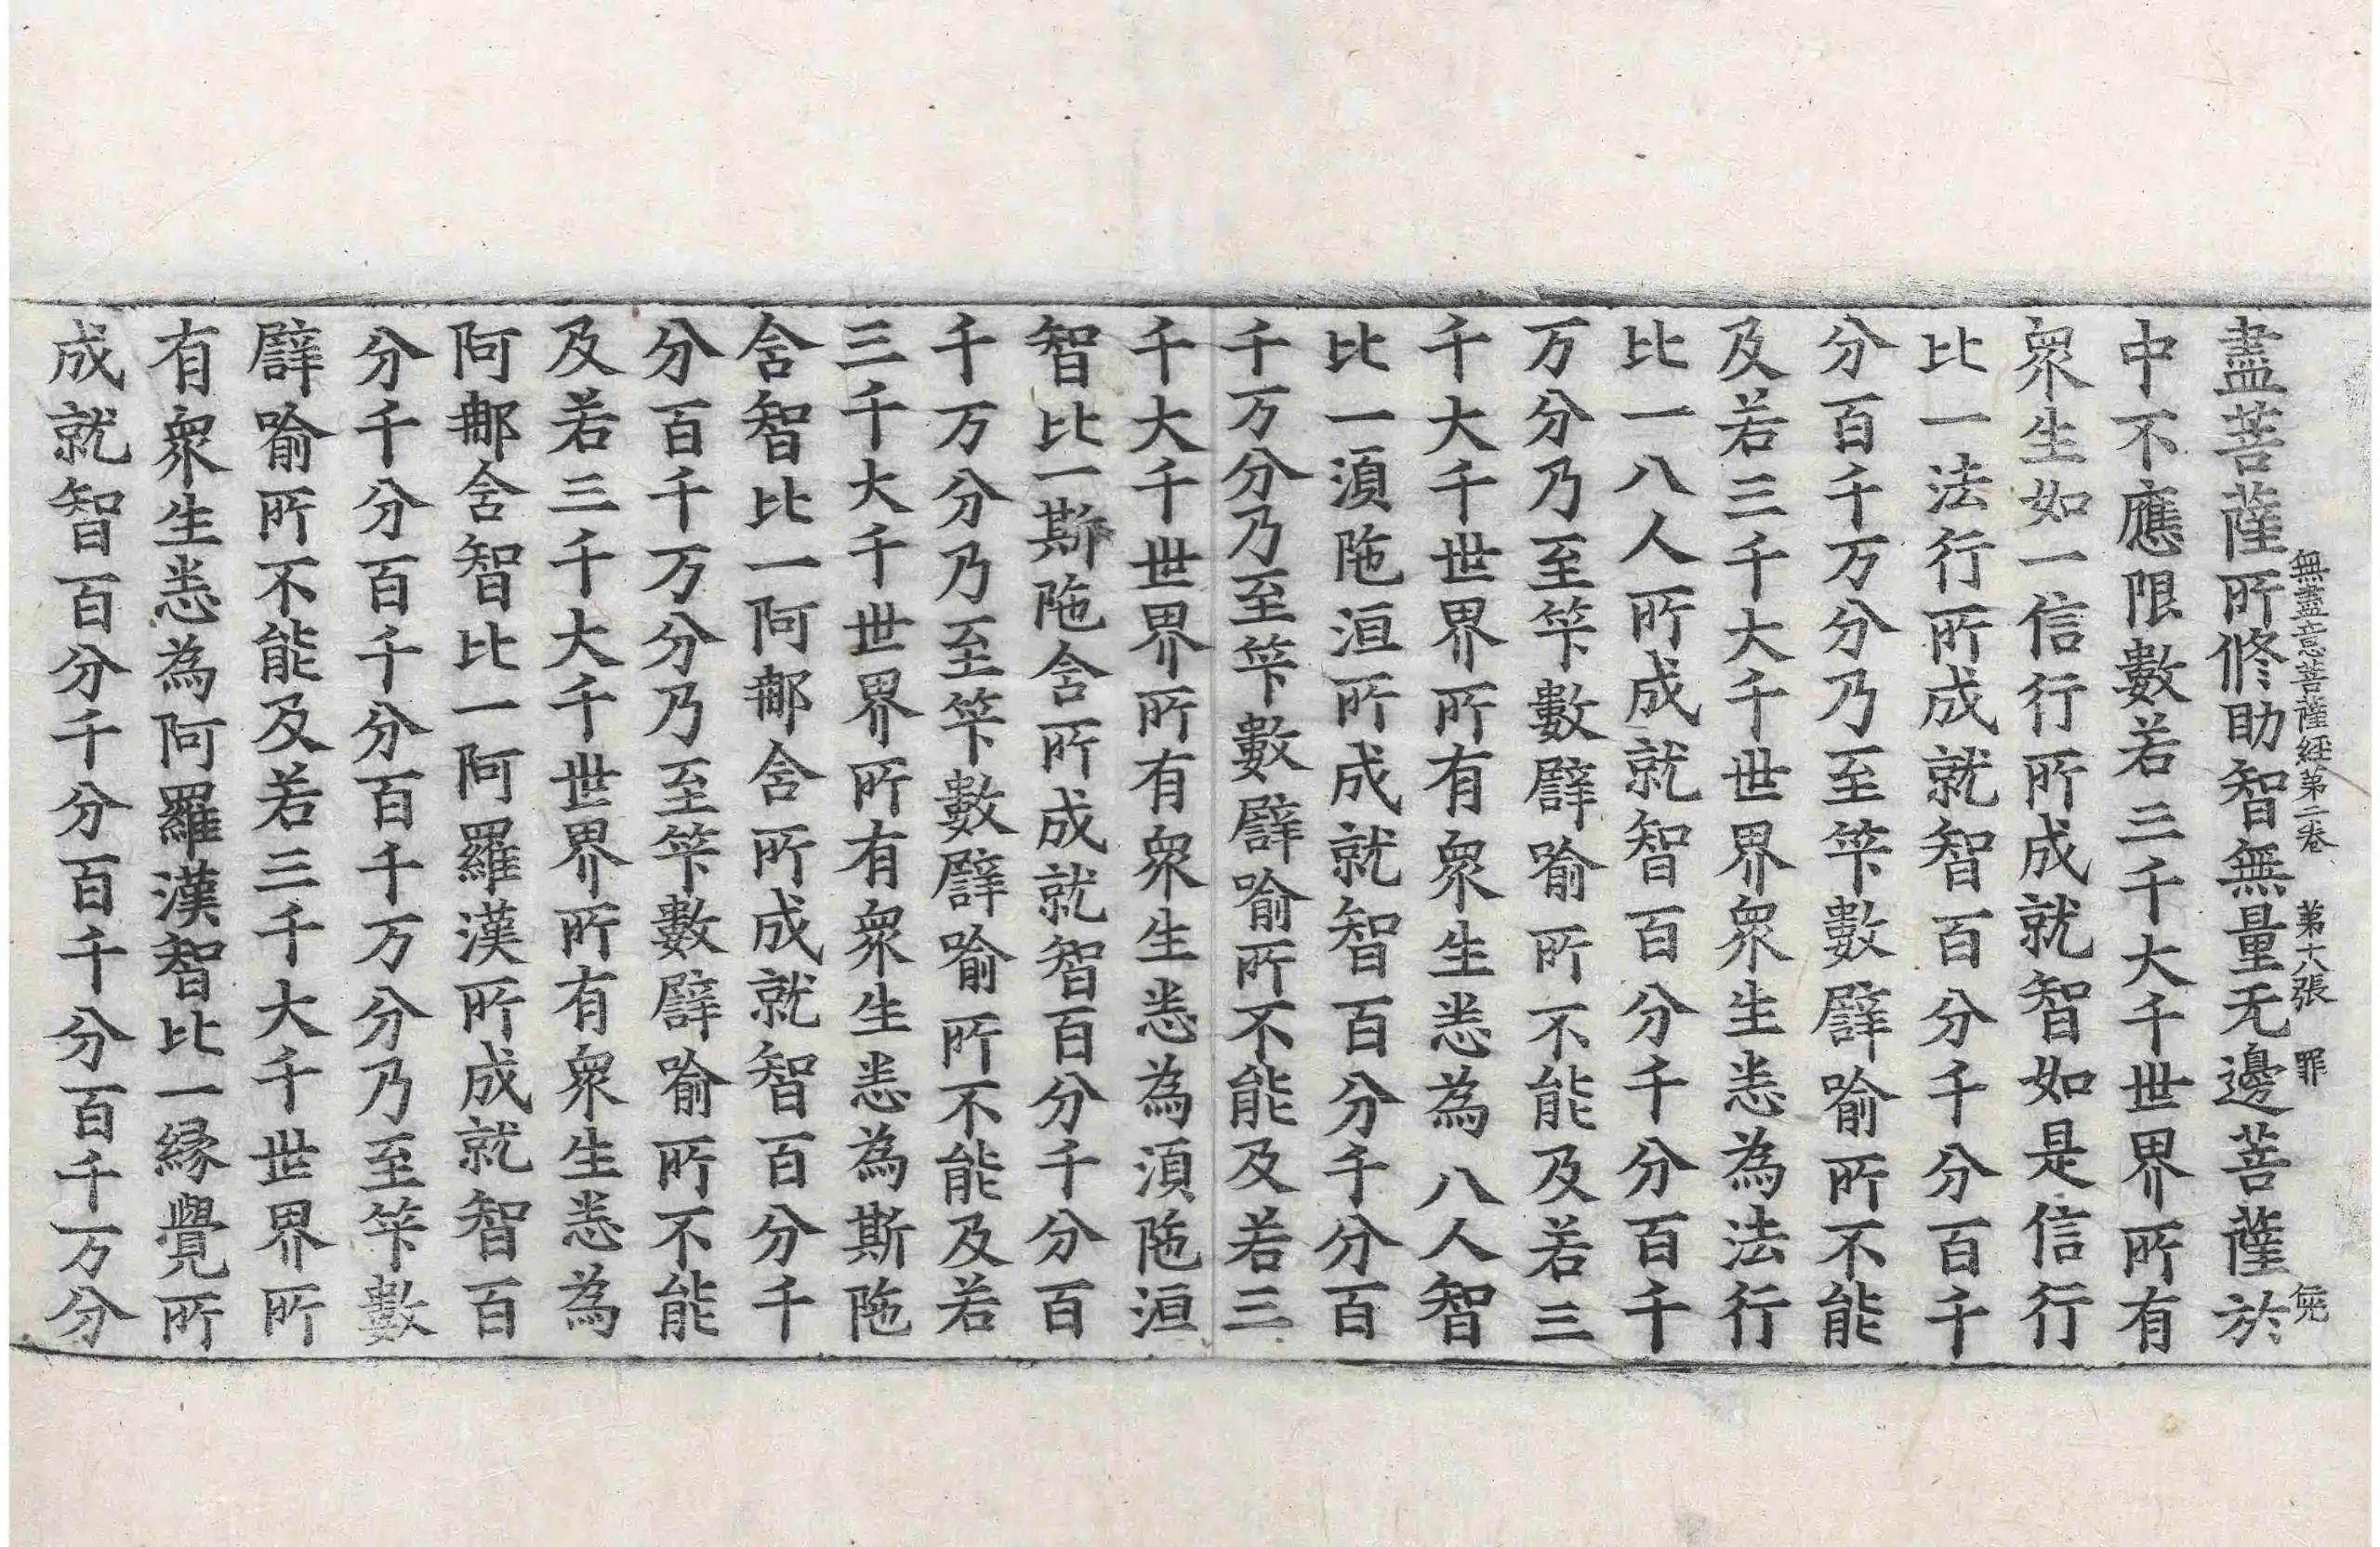 無盡意菩薩経第二卷 第十八張 罪
盡菩薩所修助智無量无邊菩薩於
中不應限數若三千大千世界所有
衆生如一信行所成就智如是信行
比一法行所成就智百分千分百千
分百千万分乃至笇數譬喻所不能
及若三千大千世界衆生悉為法行
比一八人所成就智百分千分百千
万分乃至笇數譬喻所不能及若三
千大千世界所有衆生悉為八人智
比一湏陁洹所成就智百分千分百
千万分乃至笇數譬喻所不能及若三
千大千世界所有衆生悉為湏陁洹
智比一斯陁含所成就智百分千分百
千万分乃至笇數譬喻所不能及若
三千大千世界所有衆生悉為斯陁
含智比一阿那含所成就智百分千
分百千万分乃至笇數譬喻所不能
及若三千大千世界所有衆生悉為
阿那含智比一阿羅漢所成就智百
分千分百千分百千万分乃至笇數
譬喻所不能及若三千大千世界所
有衆生悉為阿羅漢智比一縁覺所
成就智百分千分百千分百千万分